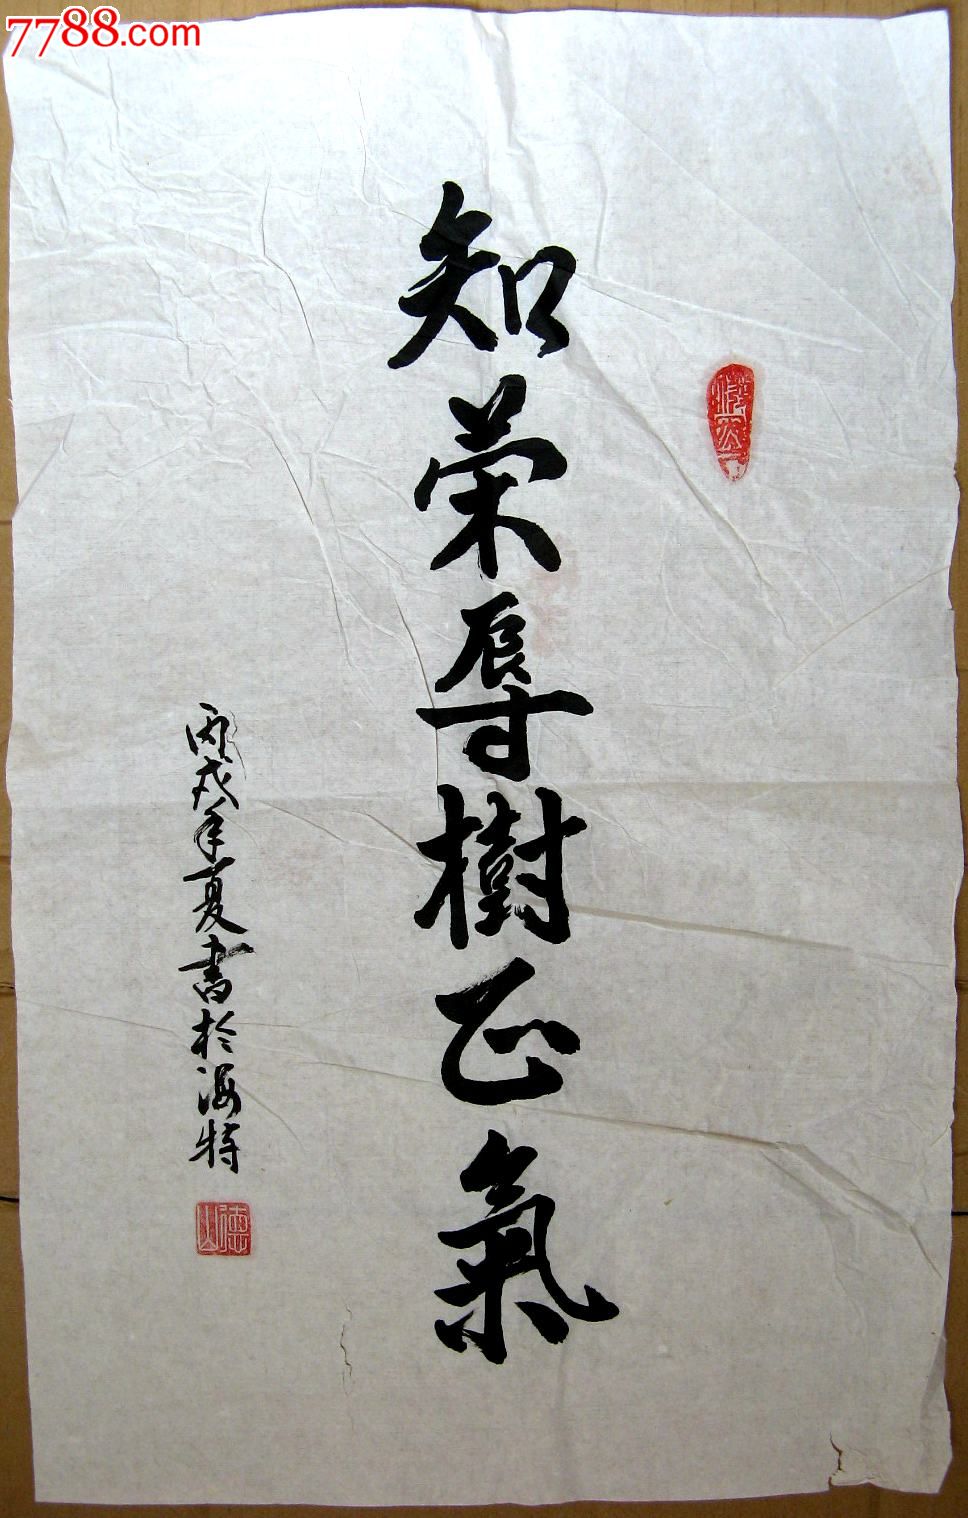 7788.com
知榮辱樹正氣
丙戌年夏書於海特
德山